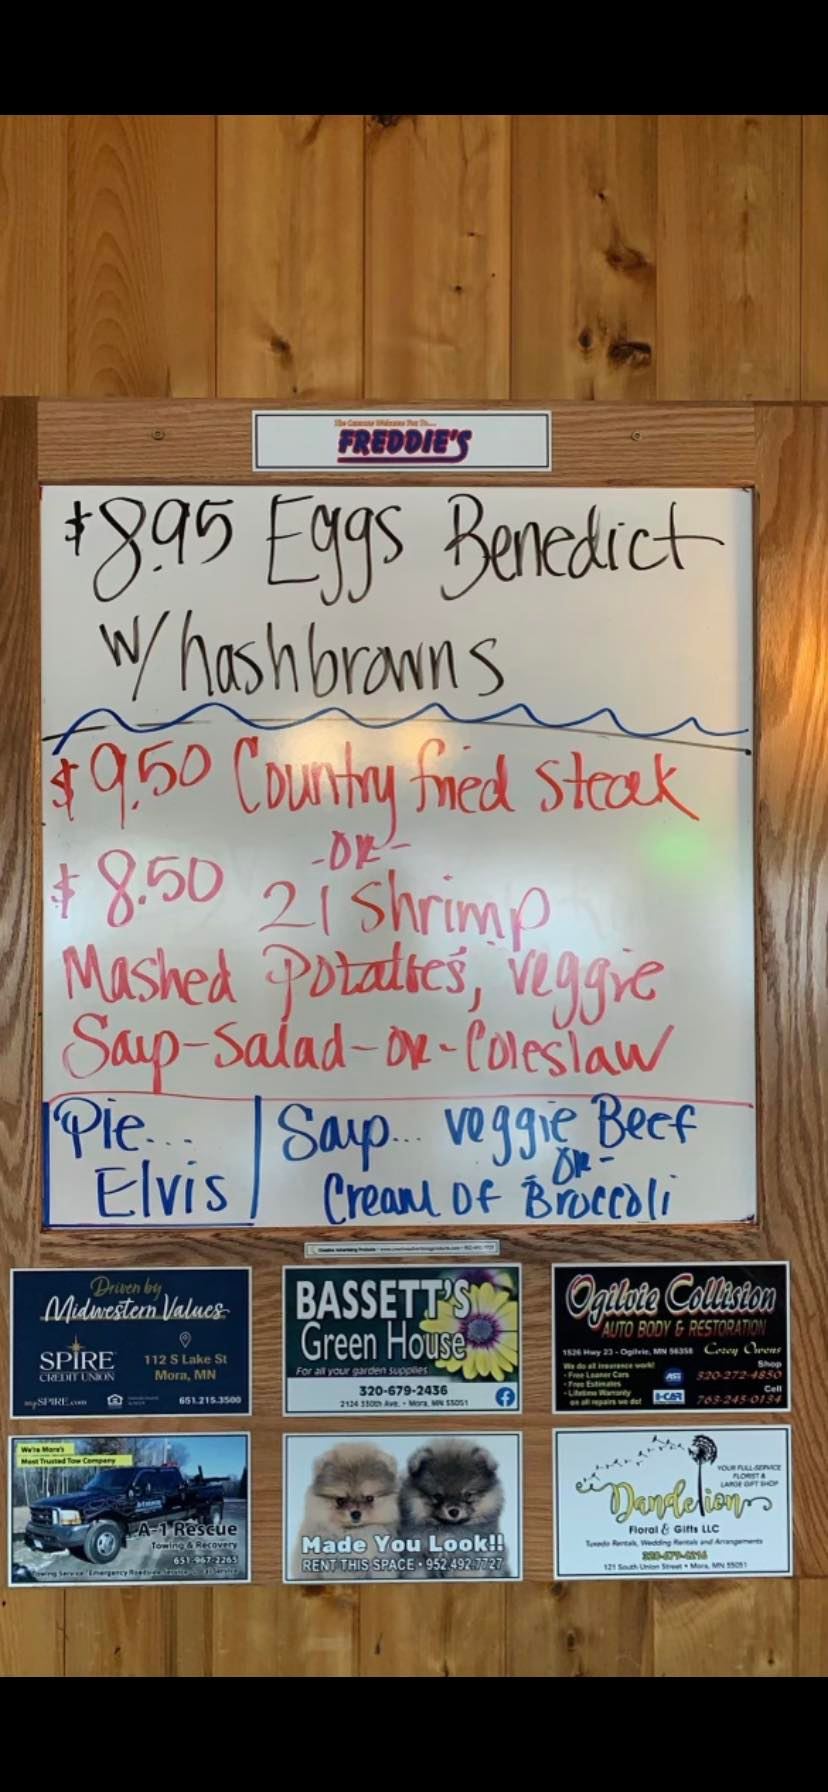 The Common Welcome For To...
FREDDIE'S
$8.95 Eggs Benedict
w/ hashbrowns
$9.50 Country fried steak
-OR-
$8.50 21 Shrimp
Mashed Potatoes, veggie
Soup-Salad-OR-Coleslaw
Pie...
Elvis
Soup... veggie Beef
-OR-
Cream OF Broccoli
Driven by
Midwestern Values
SPIRE
CREDIT UNION
112 S Lake St
Mora, MN
mySPIRE.com
651.215.3500
BASSETT'S
Green House
For all your garden supplies
320-679-2436
2124 330th Ave. • Mora, MN 55051
Ogilvie Collision
AUTO BODY & RESTORATION
1526 Hwy 23 - Ogilvie, MN 56358 Corey Owens
We do all insurance work!
• Free Loaner Cars
• Free Estimates
• Lifetime Warranty
on all repairs we do!
ASE
I-CAR
Shop
320-272-4850
Cell
763-245-0134
We're Mora's
Most Trusted Tow Company
A-1 Rescue
Towing & Recovery
651-967-2265
Towing Service Emergency Roadside Service
Made You Look!!
RENT THIS SPACE • 952.492.7727
YOUR FULL-SERVICE
FLORIST &
LARGE GIFT SHOP
Dandelion
Floral & Gifts LLC
Tuxedo Rentals, Wedding Rentals and Arrangements
320-679-4216
121 South Union Street • Mora, MN 55051